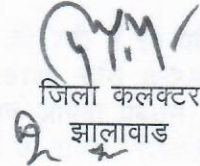 जिला कलक्टर
झालावाड